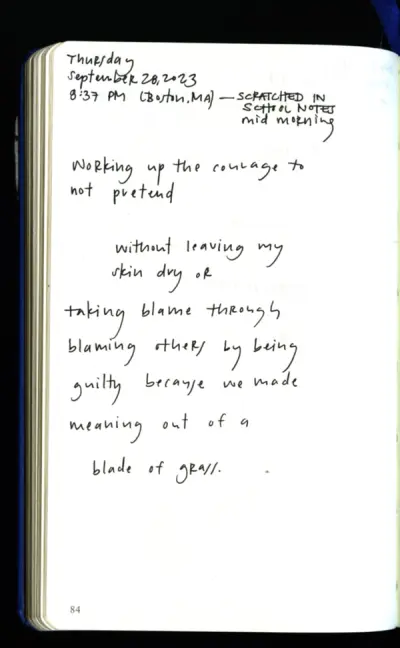 Thursday
September 28, 2023
8:37 PM (Boston, MA) — SCRATCHED IN
SCHOOL NOTES
mid morning
Working up the courage to
not pretend
without leaving my
skin dry or
taking blame through
blaming others by being
guilty because we made
meaning out of a
blade of grass.
84